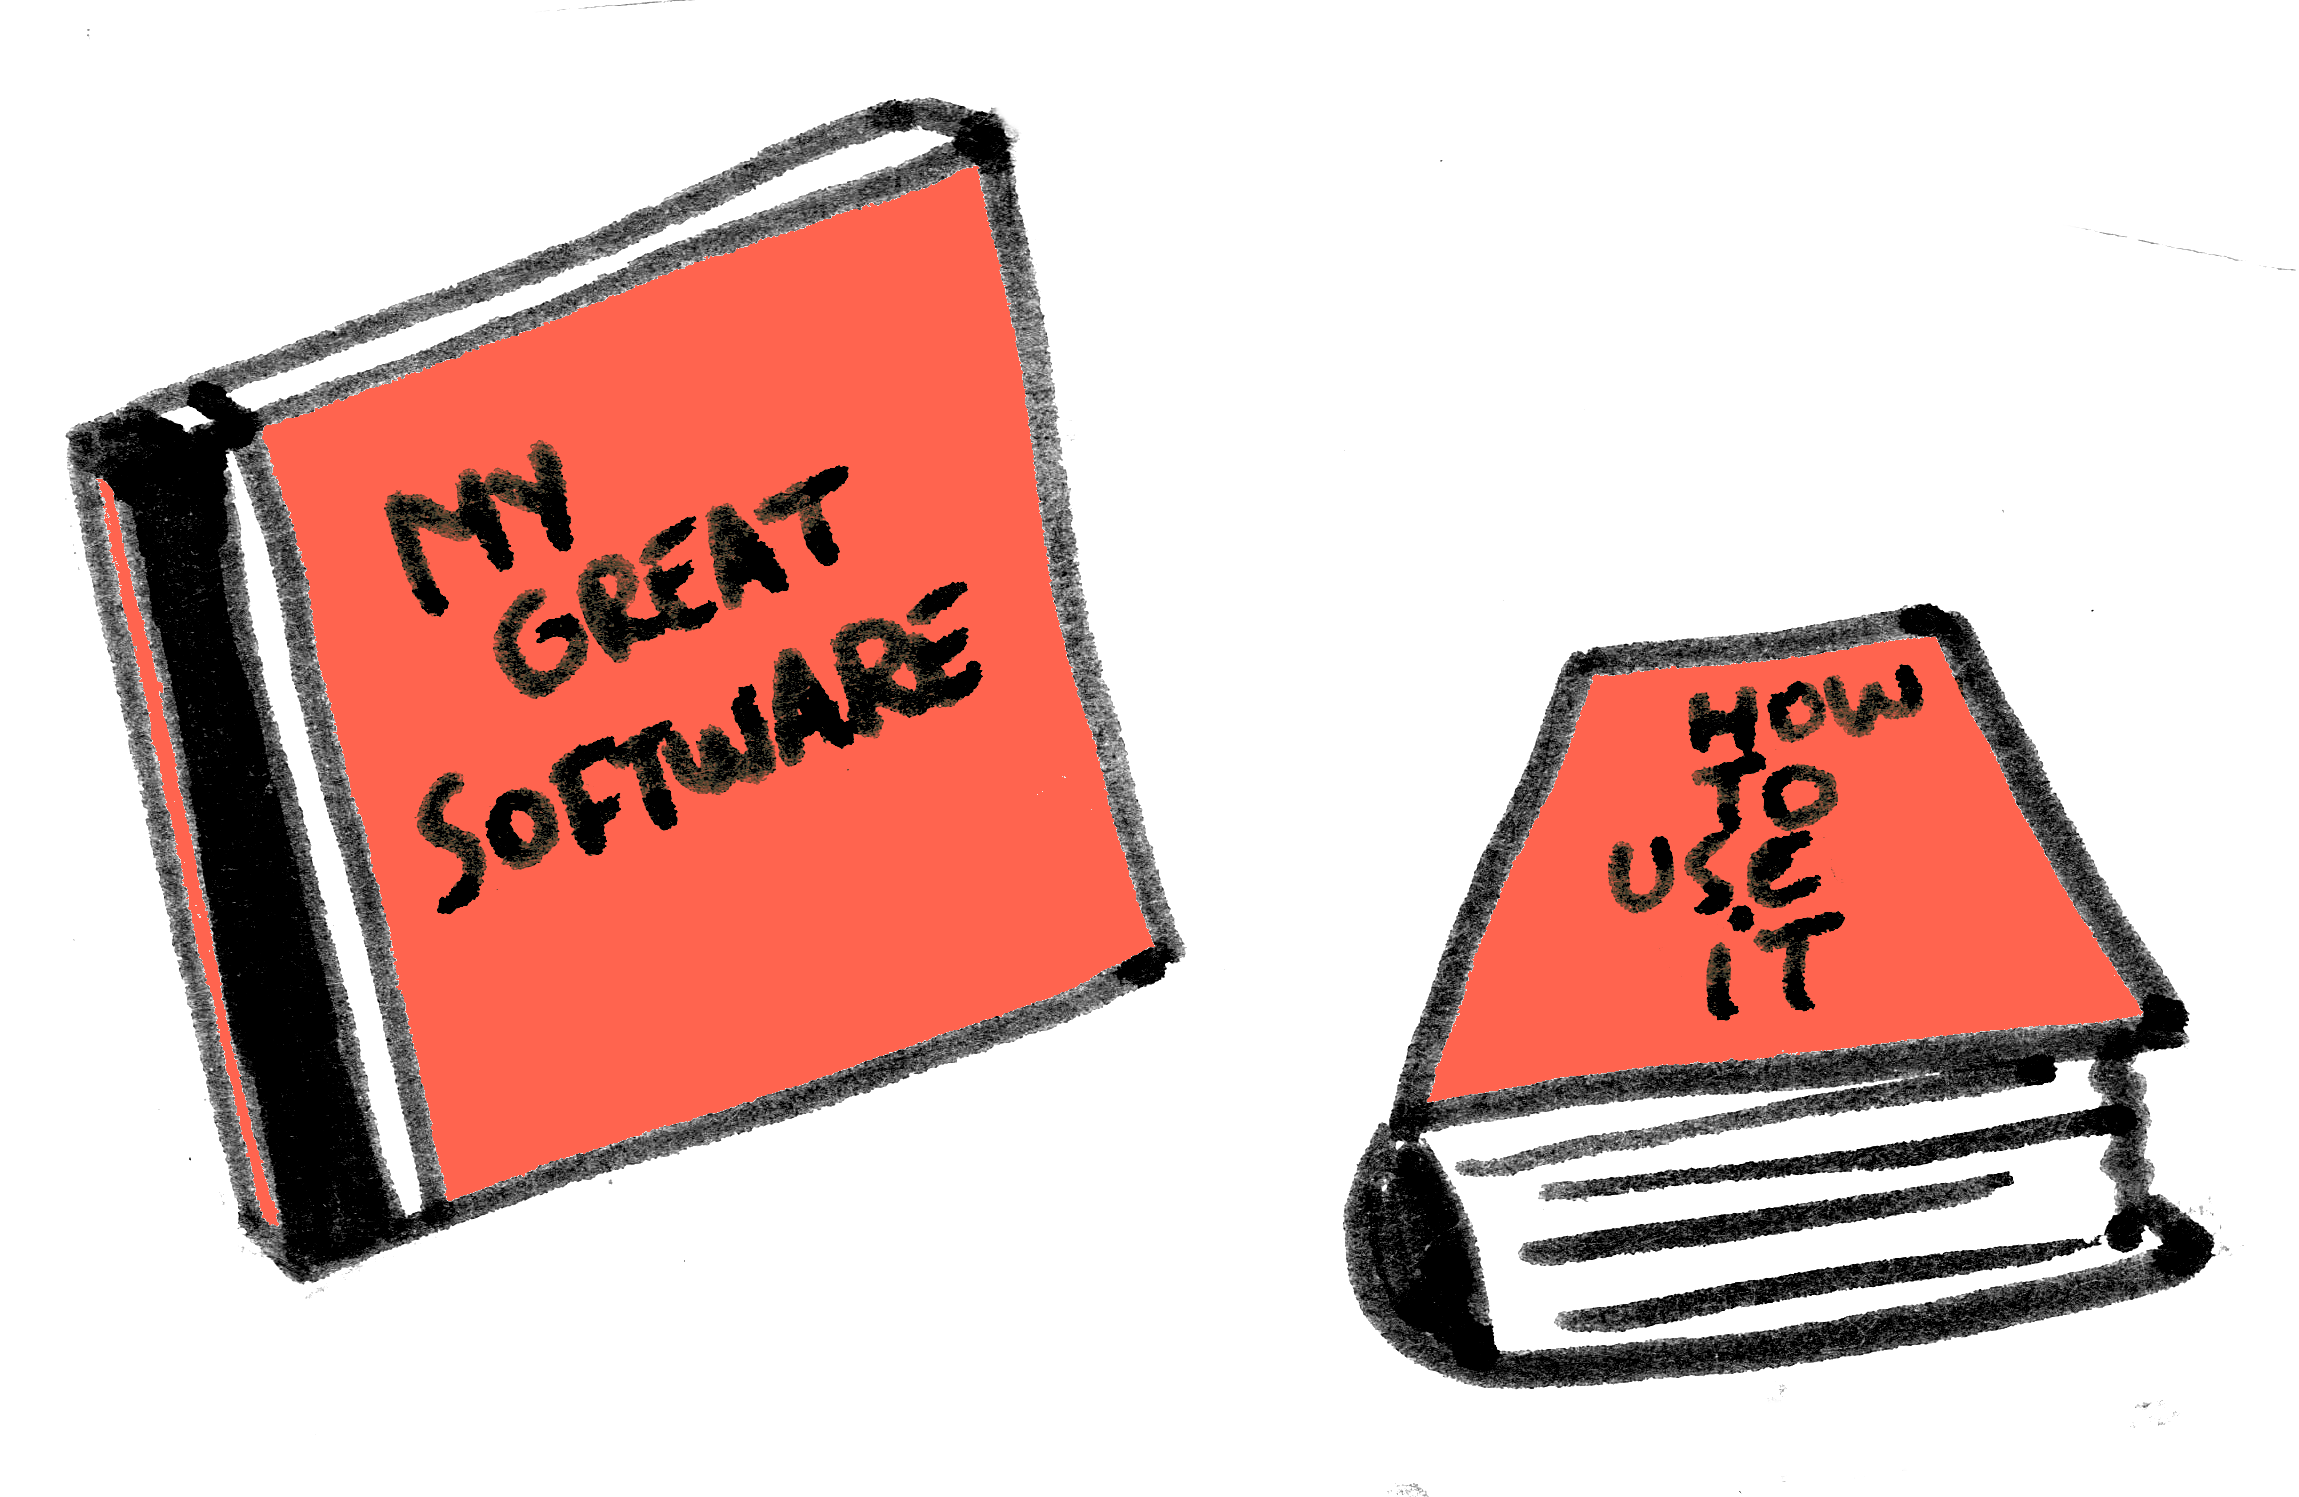 MY
GREAT
SOFTWARE
HOW
TO
USE
IT